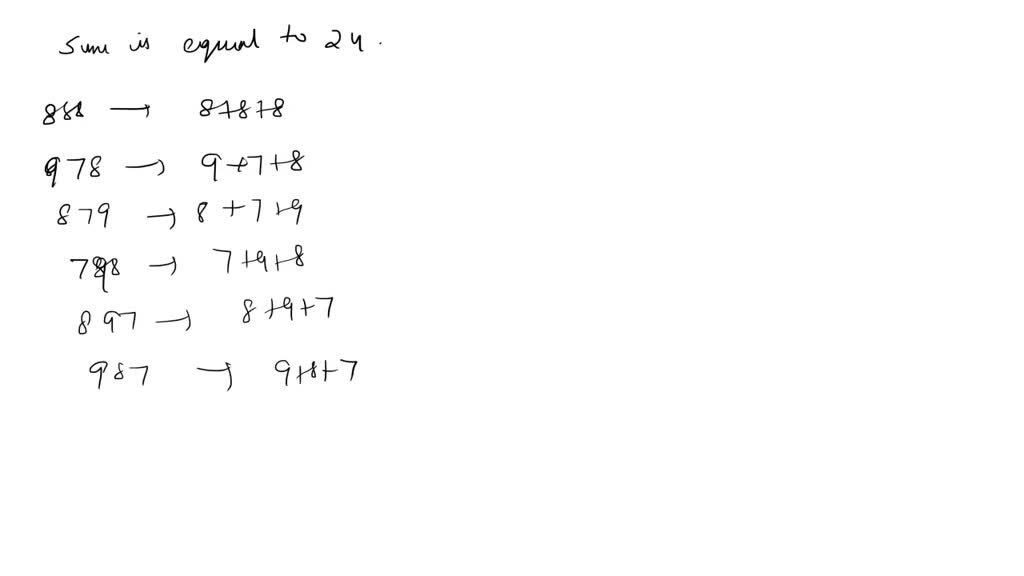 Sum is equal to 24.
888 → 8+8+8
978 → 9+7+8
879 → 8+7+9
798 → 7+9+8
897 → 8+9+7
987 → 9+8+7